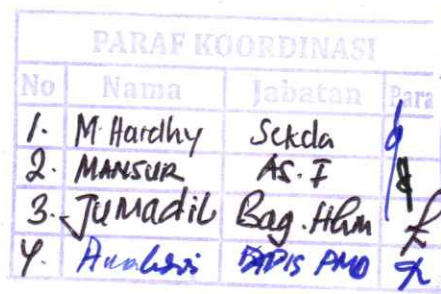 PARAF KOORDINASI
No Nama Jabatan Para
1. M. Hardhy Sekda
2. MANSUR AS. I
3. JUMADIL Bag. HKm
4. KADIS PMD